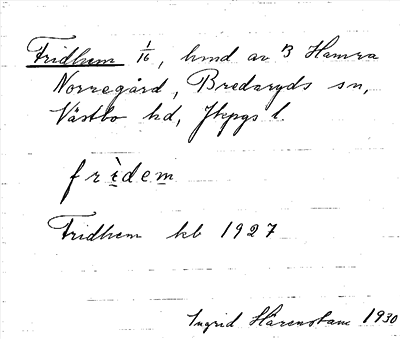 Fridhem 1/16, hmd av B Hamra
Norregård, Bredaryds sn,
Västbo hd, Jkpgs l.
frìdem
Fridhem kb 1927
Ingrid Härenstam 1930